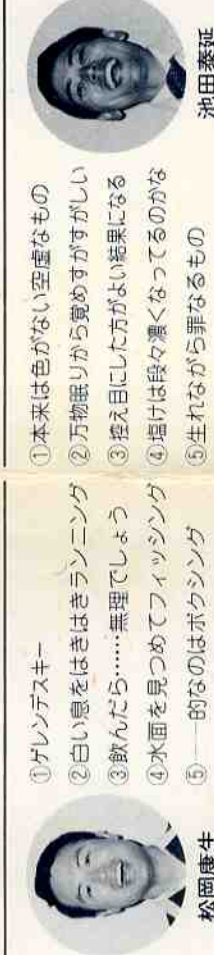 ①ゲレンデスキー
②白い息をはきはきランニング
③飲んだら……無理でしょう
④水面を見つめてフィッシング
⑤一的なのはボクシング
松岡康生
①本来は色がない空虚なもの
②万物眠りから覚めすがすがしい
③控え目にした方がよい結果になる
④塩けは段々濃くなってるのかな
⑤生れながら罪なるもの
池田泰延